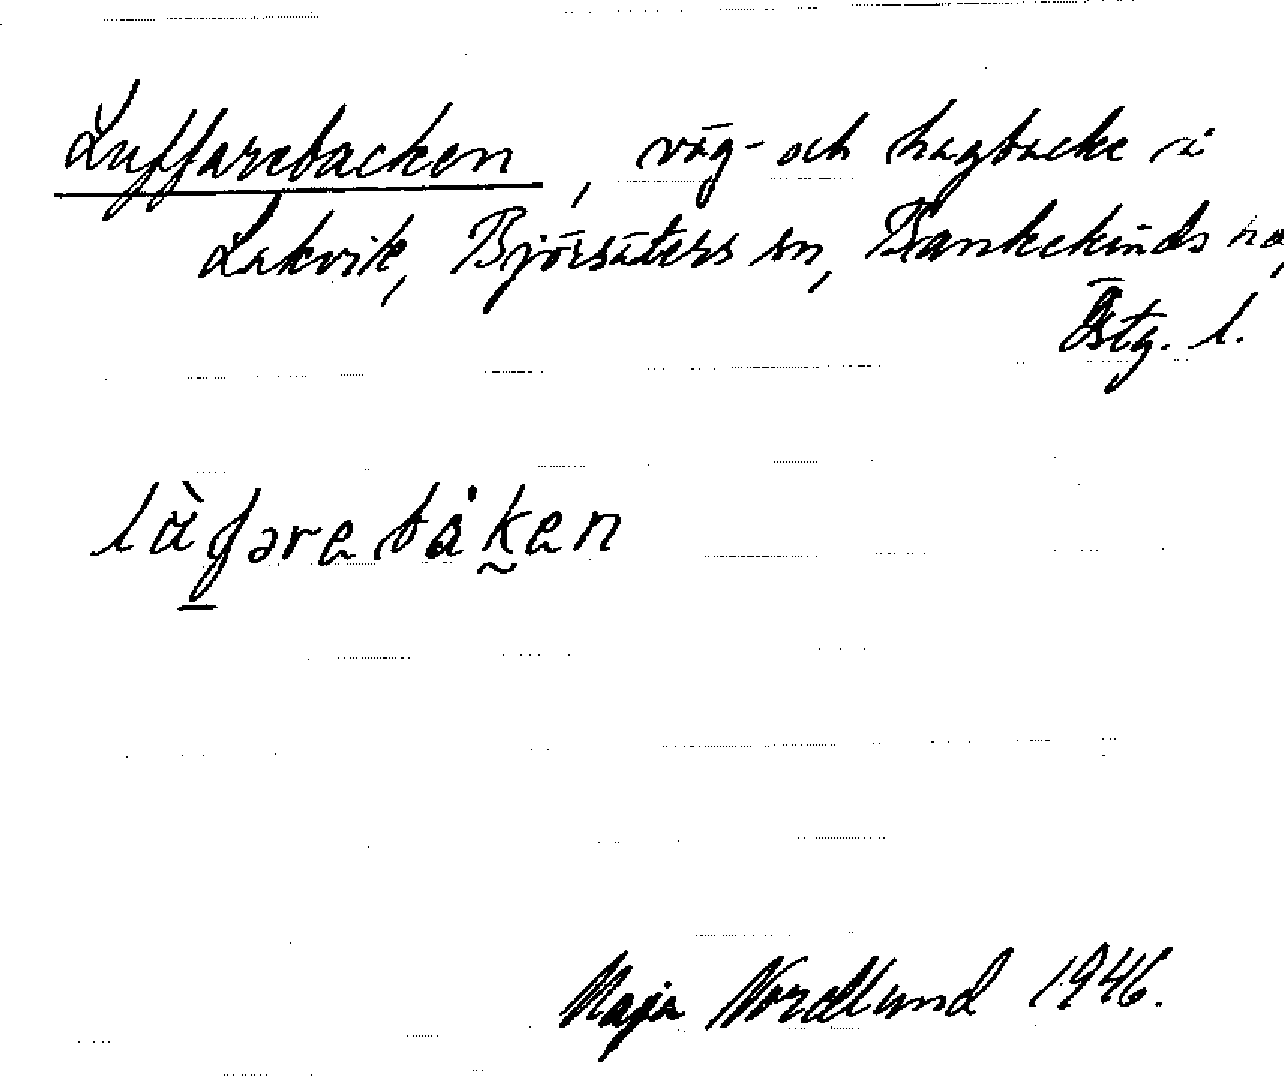 Luffarebacken, väg- och hagbacke i
Lakvik, Björsäters sn, Bankekinds hd,
Östg. l.
làfarebåken
Maja Nordlund 1946.